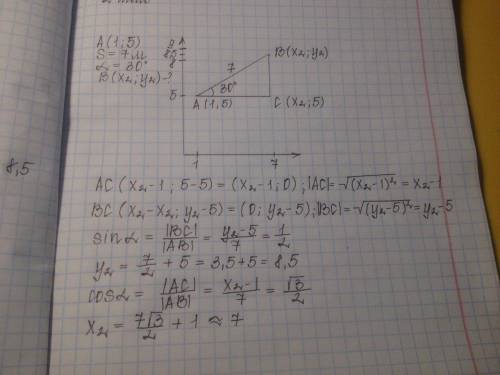 A(1;5)
S = 7м
α = 30°
B(x₂;y₂)-?
y
8,5
8
5
7
30°
A(1,5)
B(x₂;y₂)
C(x₂;5)
1
7
8,5
AC(x₂-1; 5-5) = (x₂-1; 0); |AC| = √(x₂-1)² = x₂-1
BC(x₂-x₂; y₂-5) = (0; y₂-5); |BC| = √(y₂-5)² = y₂-5
sinα = |BC|/|AB| = y₂-5/7 = 1/2
y₂ = 7/2 + 5 = 3,5+5 = 8,5
cosα = |AC|/|AB| = x₂-1/7 = √3/2
x₂ = 7√3/2 + 1 ≈ 7